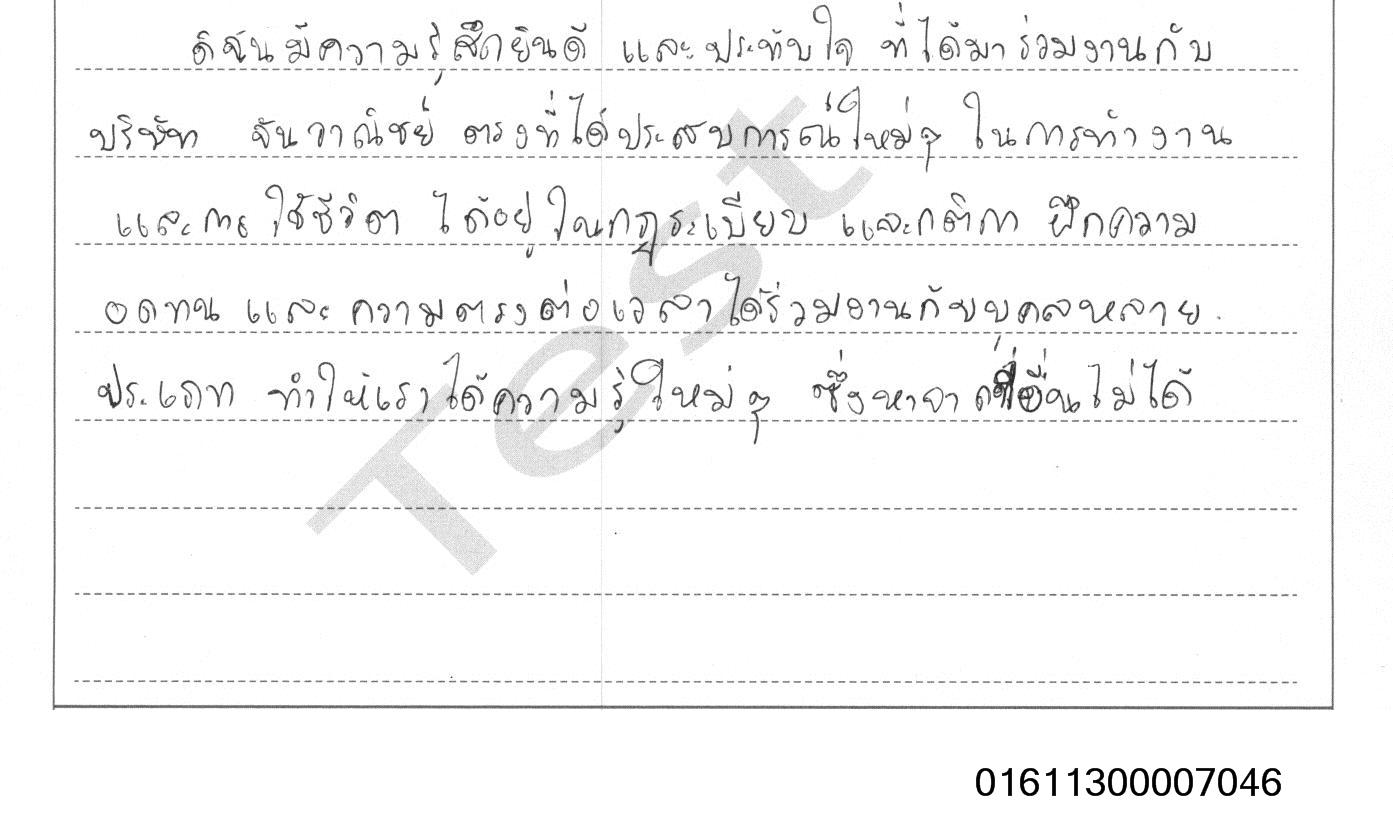 ดิฉันมีความรู้สึกยินดี และประทับใจ ที่ได้มาร่วมงานกับ
บริษัท จันวาณิชย์ ตรงที่ได้ประสบการณ์ใหม่ๆ ในการทำงาน
และการใช้ชีวิต ได้อยู่ในกฎระเบียบ และกติกา ฝึกความ
อดทน และความตรงต่อเวลา ได้ร่วมงานกับบุคคลหลาย
ประเภท ทำให้เราได้ความรู้ใหม่ๆ ซึ่งหาจากที่อื่นไม่ได้
Test
01611300007046